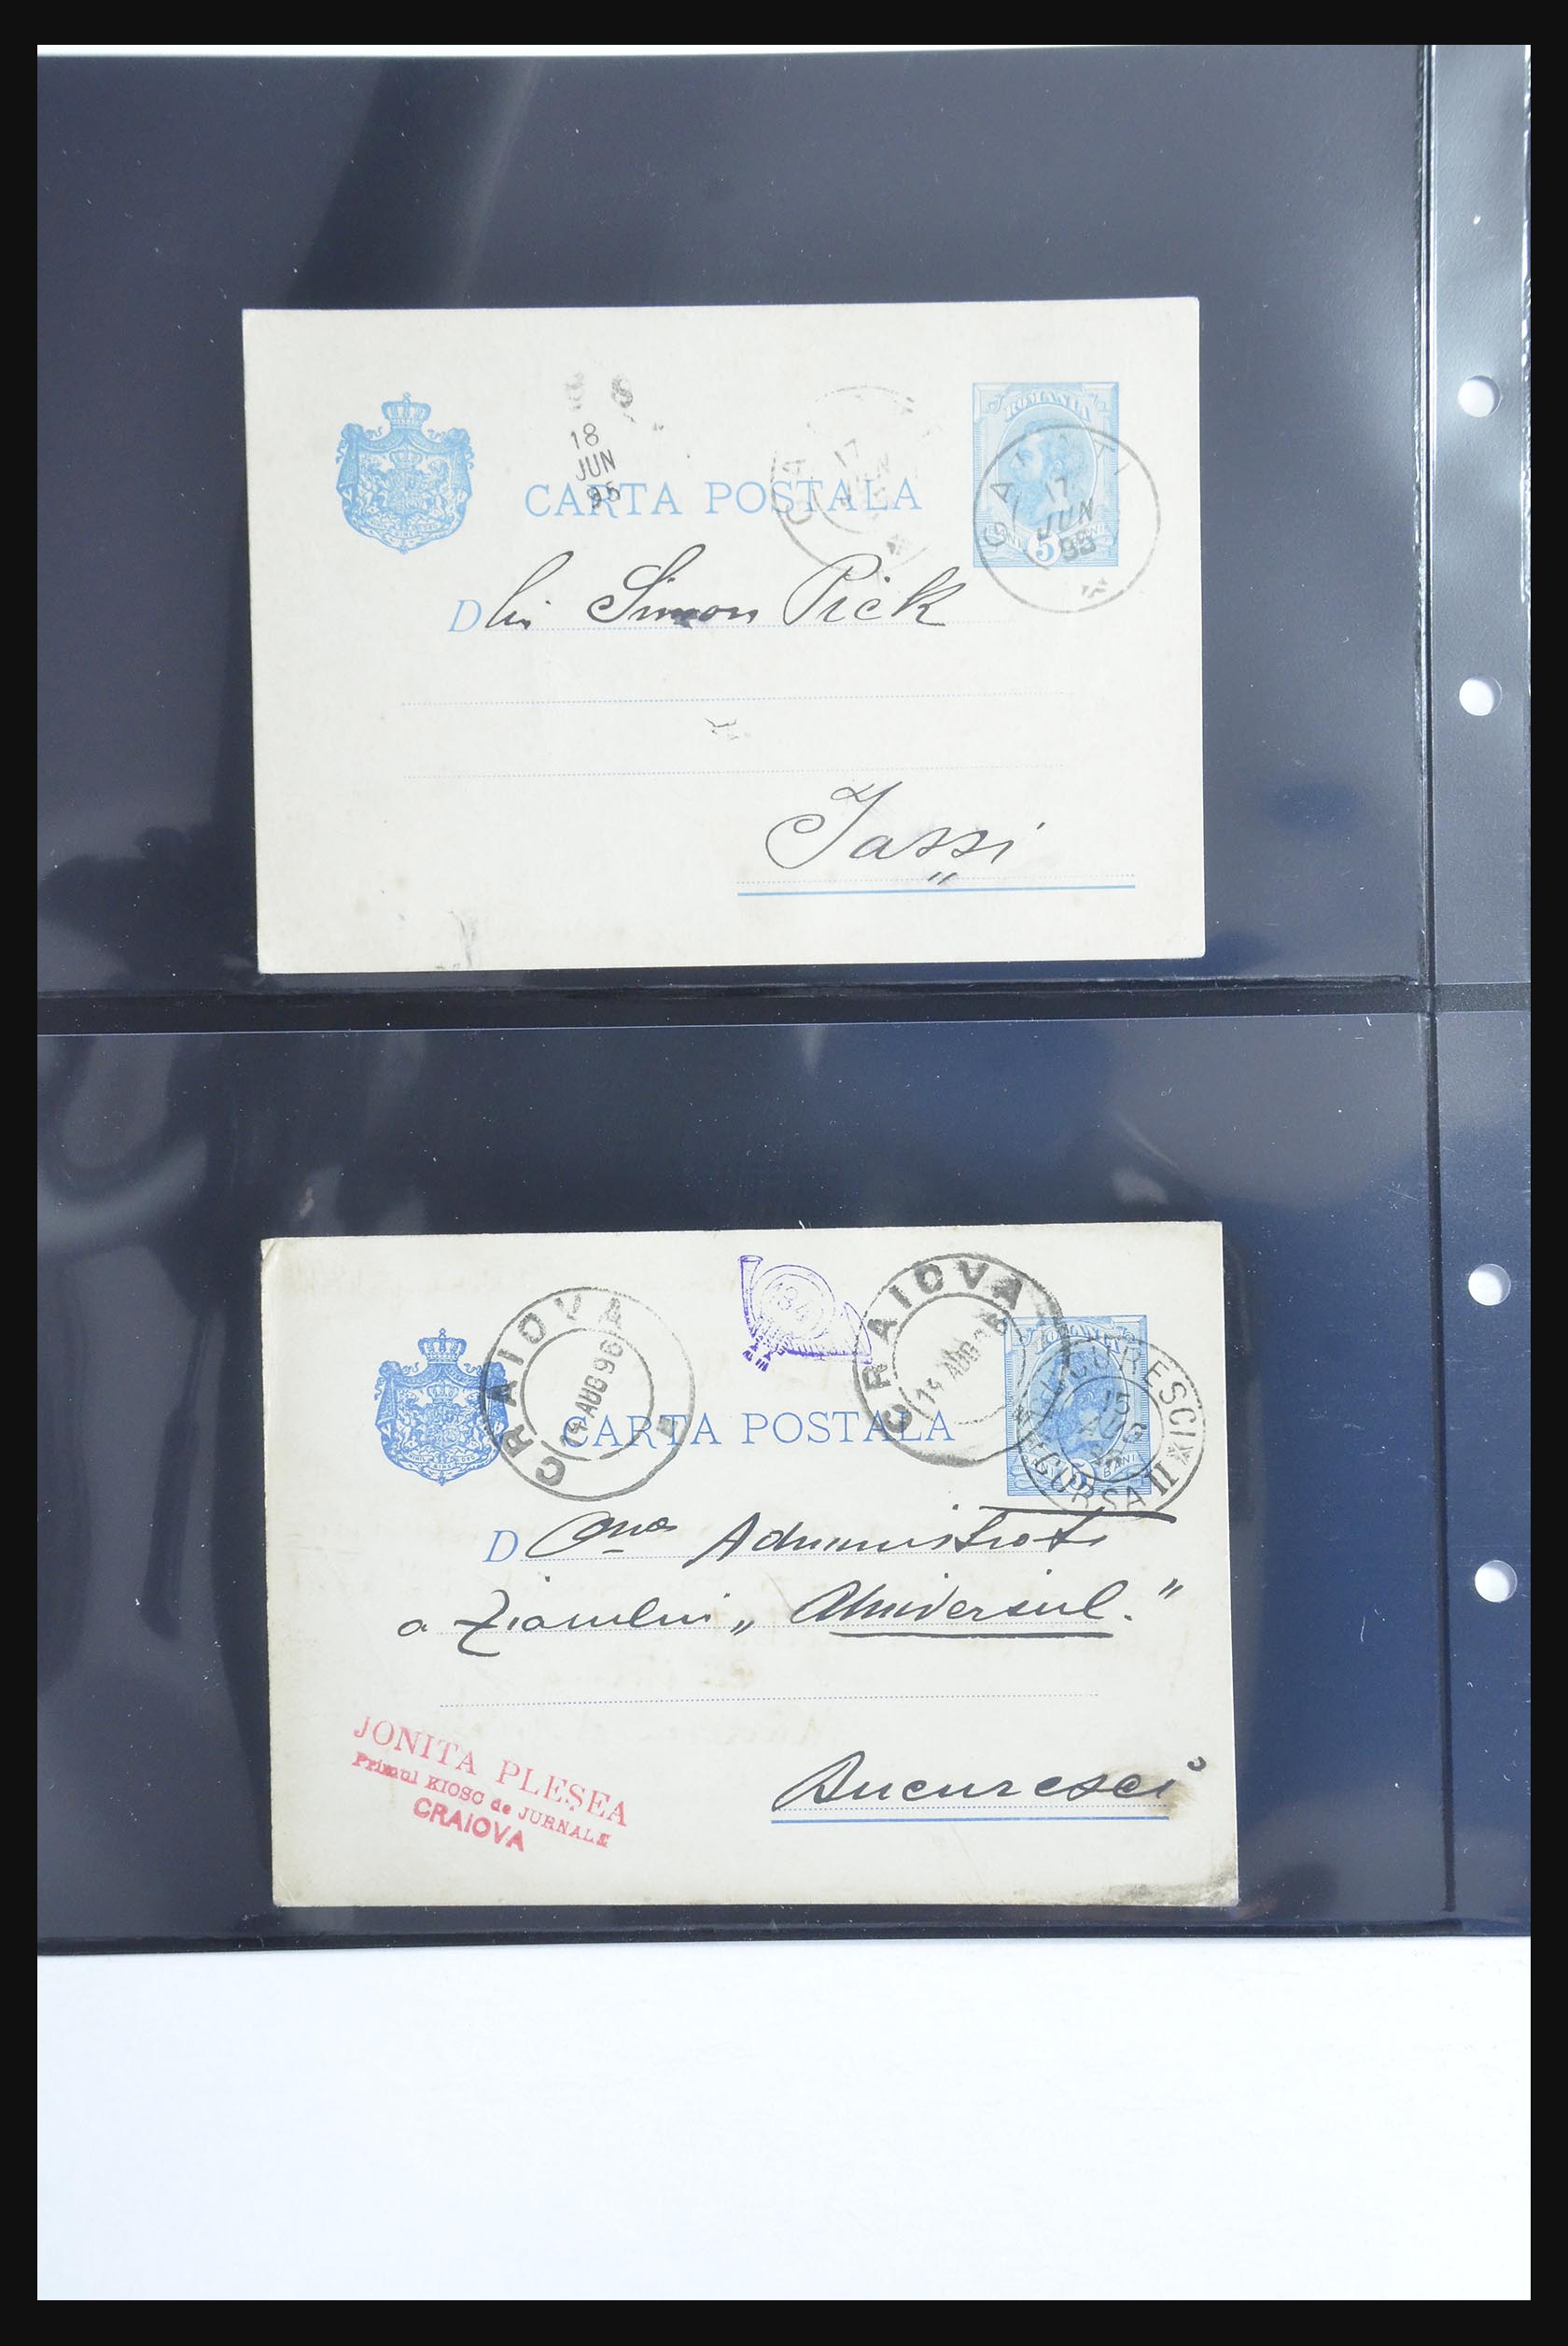 ROMANIA
18
JUN
95
17
CARTA POSTALA
GALATI
17
JUN
95
BANI 5 BANI
Dlui Simon Pick
Jassi
"
CRAIOVA
14 AUG 96
184
CRAIOVA
14 AUG 96
ROMANIA
BUCURESCI
15
AUG
CURSA II
CARTA POSTALA
5 BANI
D Onor Administrati
a Ziarului „Universul."
JONITA PLEȘEA
Primul KIOSC de JURNALE
CRAIOVA
Bucuresci